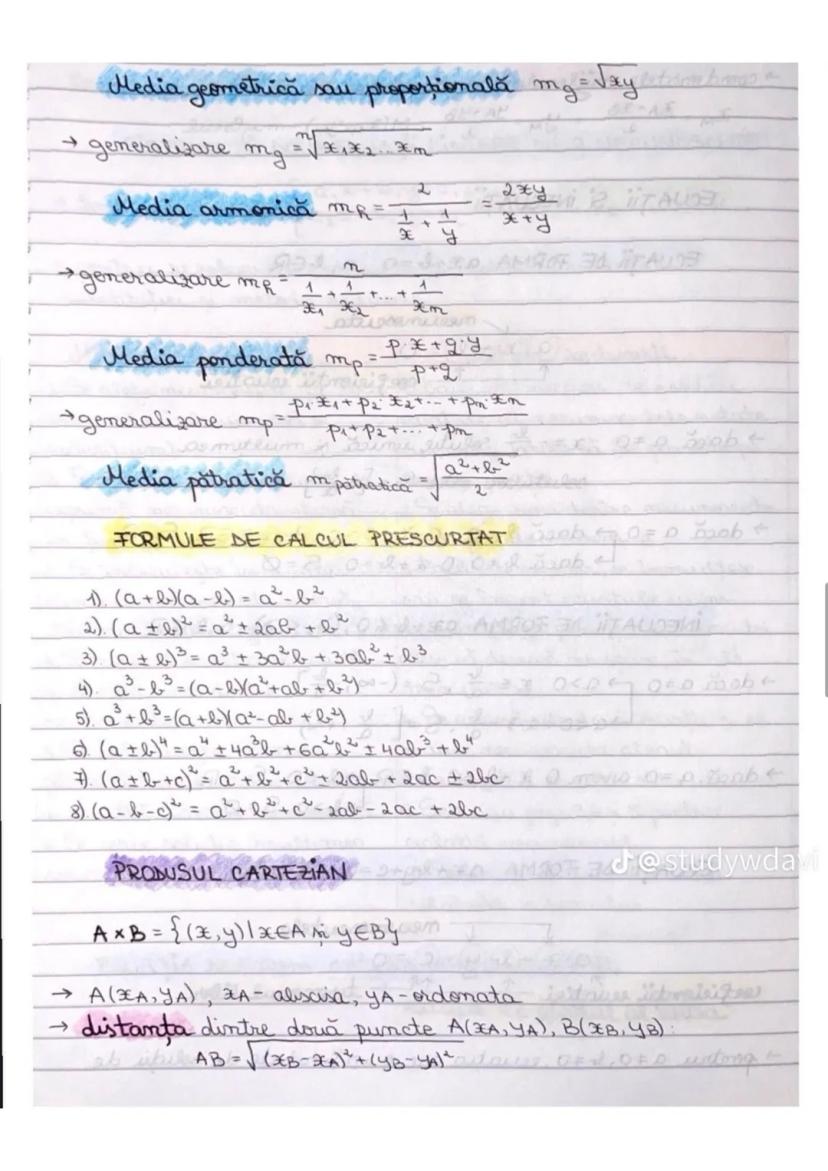 Media geometrică sau proporțională m_g = √xy
→ generalizare m_g = ⁿ√x₁x₂...xₙ
Media armonică m_h = 2/(1/x + 1/y) = 2xy/(x+y)
→ generalizare m_h = n/(1/x₁ + 1/x₂ + ... + 1/xₙ)
Media ponderată m_p = (p·x+q·y)/(p+q)
→ generalizare m_p = (p₁·x₁+p₂·x₂+...+pₙ·xₙ)/(p₁+p₂+...+pₙ)
Media pătratică m pătratică = √((a²+b²)/2)
FORMULE DE CALCUL PRESCURTAT
1). (a+b)(a-b) = a²-b²
2). (a ± b)² = a² ± 2ab + b²
3). (a ± b)³ = a³ ± 3a²b + 3ab² ± b³
4). a³-b³ = (a-b)(a²+ab+b²)
5). a³+b³ = (a+b)(a²-ab+b²)
6). (a ± b)⁴ = a⁴ ± 4a³b + 6a²b² ± 4ab³ + b⁴
7). (a ± b+c)² = a²+b²+c² ± 2ab + 2ac ± 2bc
8). (a-b-c)² = a²+b²+c²-2ab-2ac+2bc
PRODUSUL CARTEZIAN
@studywdavi
A×B = {(x,y) | x∈A și y∈B}
→ A(x_A, y_A), x_A - abscisa, y_A - ordonata
→ distanța dintre două puncte A(x_A, y_A), B(x_B, y_B):
AB = √(x_B-x_A)²+(y_B-y_A)²